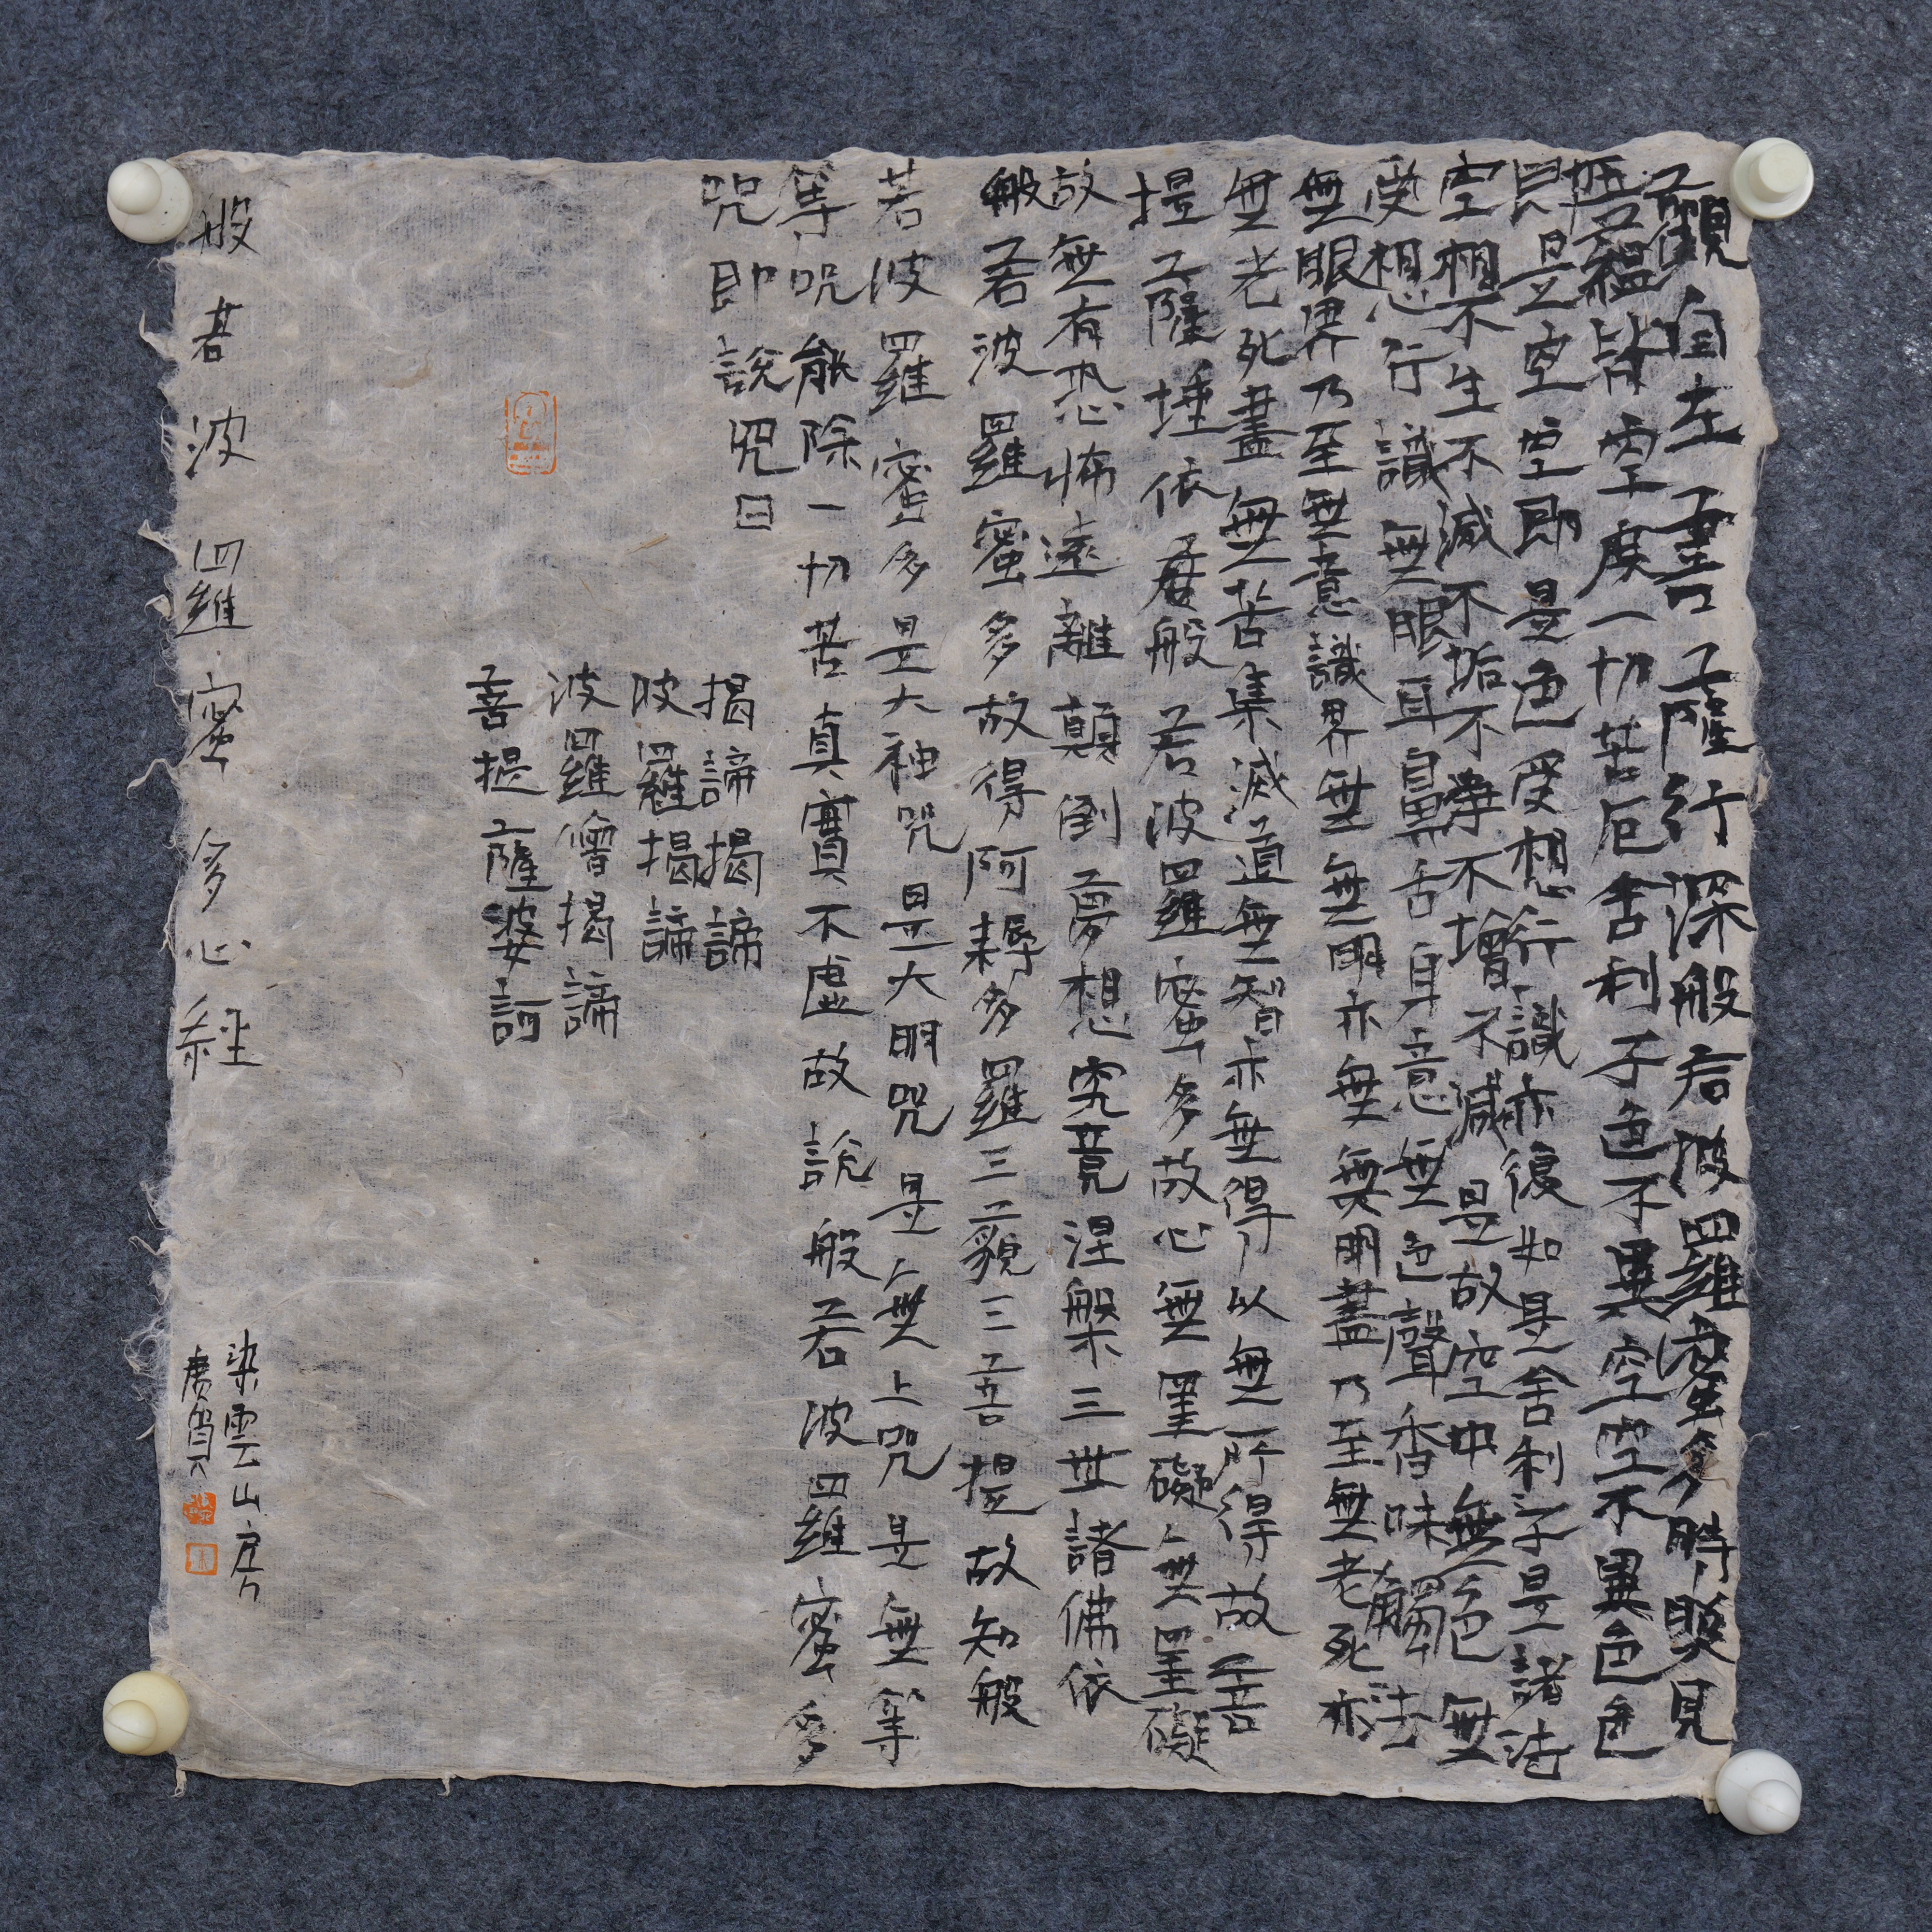 觀自在菩薩行深般若波羅蜜多時照見
五蘊皆空度一切苦厄舍利子色不異空空不異色色
即是空空即是色受想行識亦復如是舍利子是諸法
空相不生不滅不垢不淨不增不減是故空中無色無
受想行識無眼耳鼻舌身意無色聲香味觸法
無眼界乃至無意識界無無明亦無無明盡乃至無老死亦
無老死盡無苦集滅道無智亦無得以無所得故菩
提薩埵依般若波羅蜜多故心無罣礙無罣礙
故無有恐怖遠離顛倒夢想究竟涅槃三世諸佛依
般若波羅蜜多故得阿耨多羅三藐三菩提故知般
若波羅蜜多是大神咒是大明咒是無上咒是無等
等咒能除一切苦真實不虛故說般若波羅蜜多
咒即說咒曰
揭諦揭諦
波羅揭諦
波羅僧揭諦
菩提薩婆訶
般若波羅蜜多心經
染雲山房